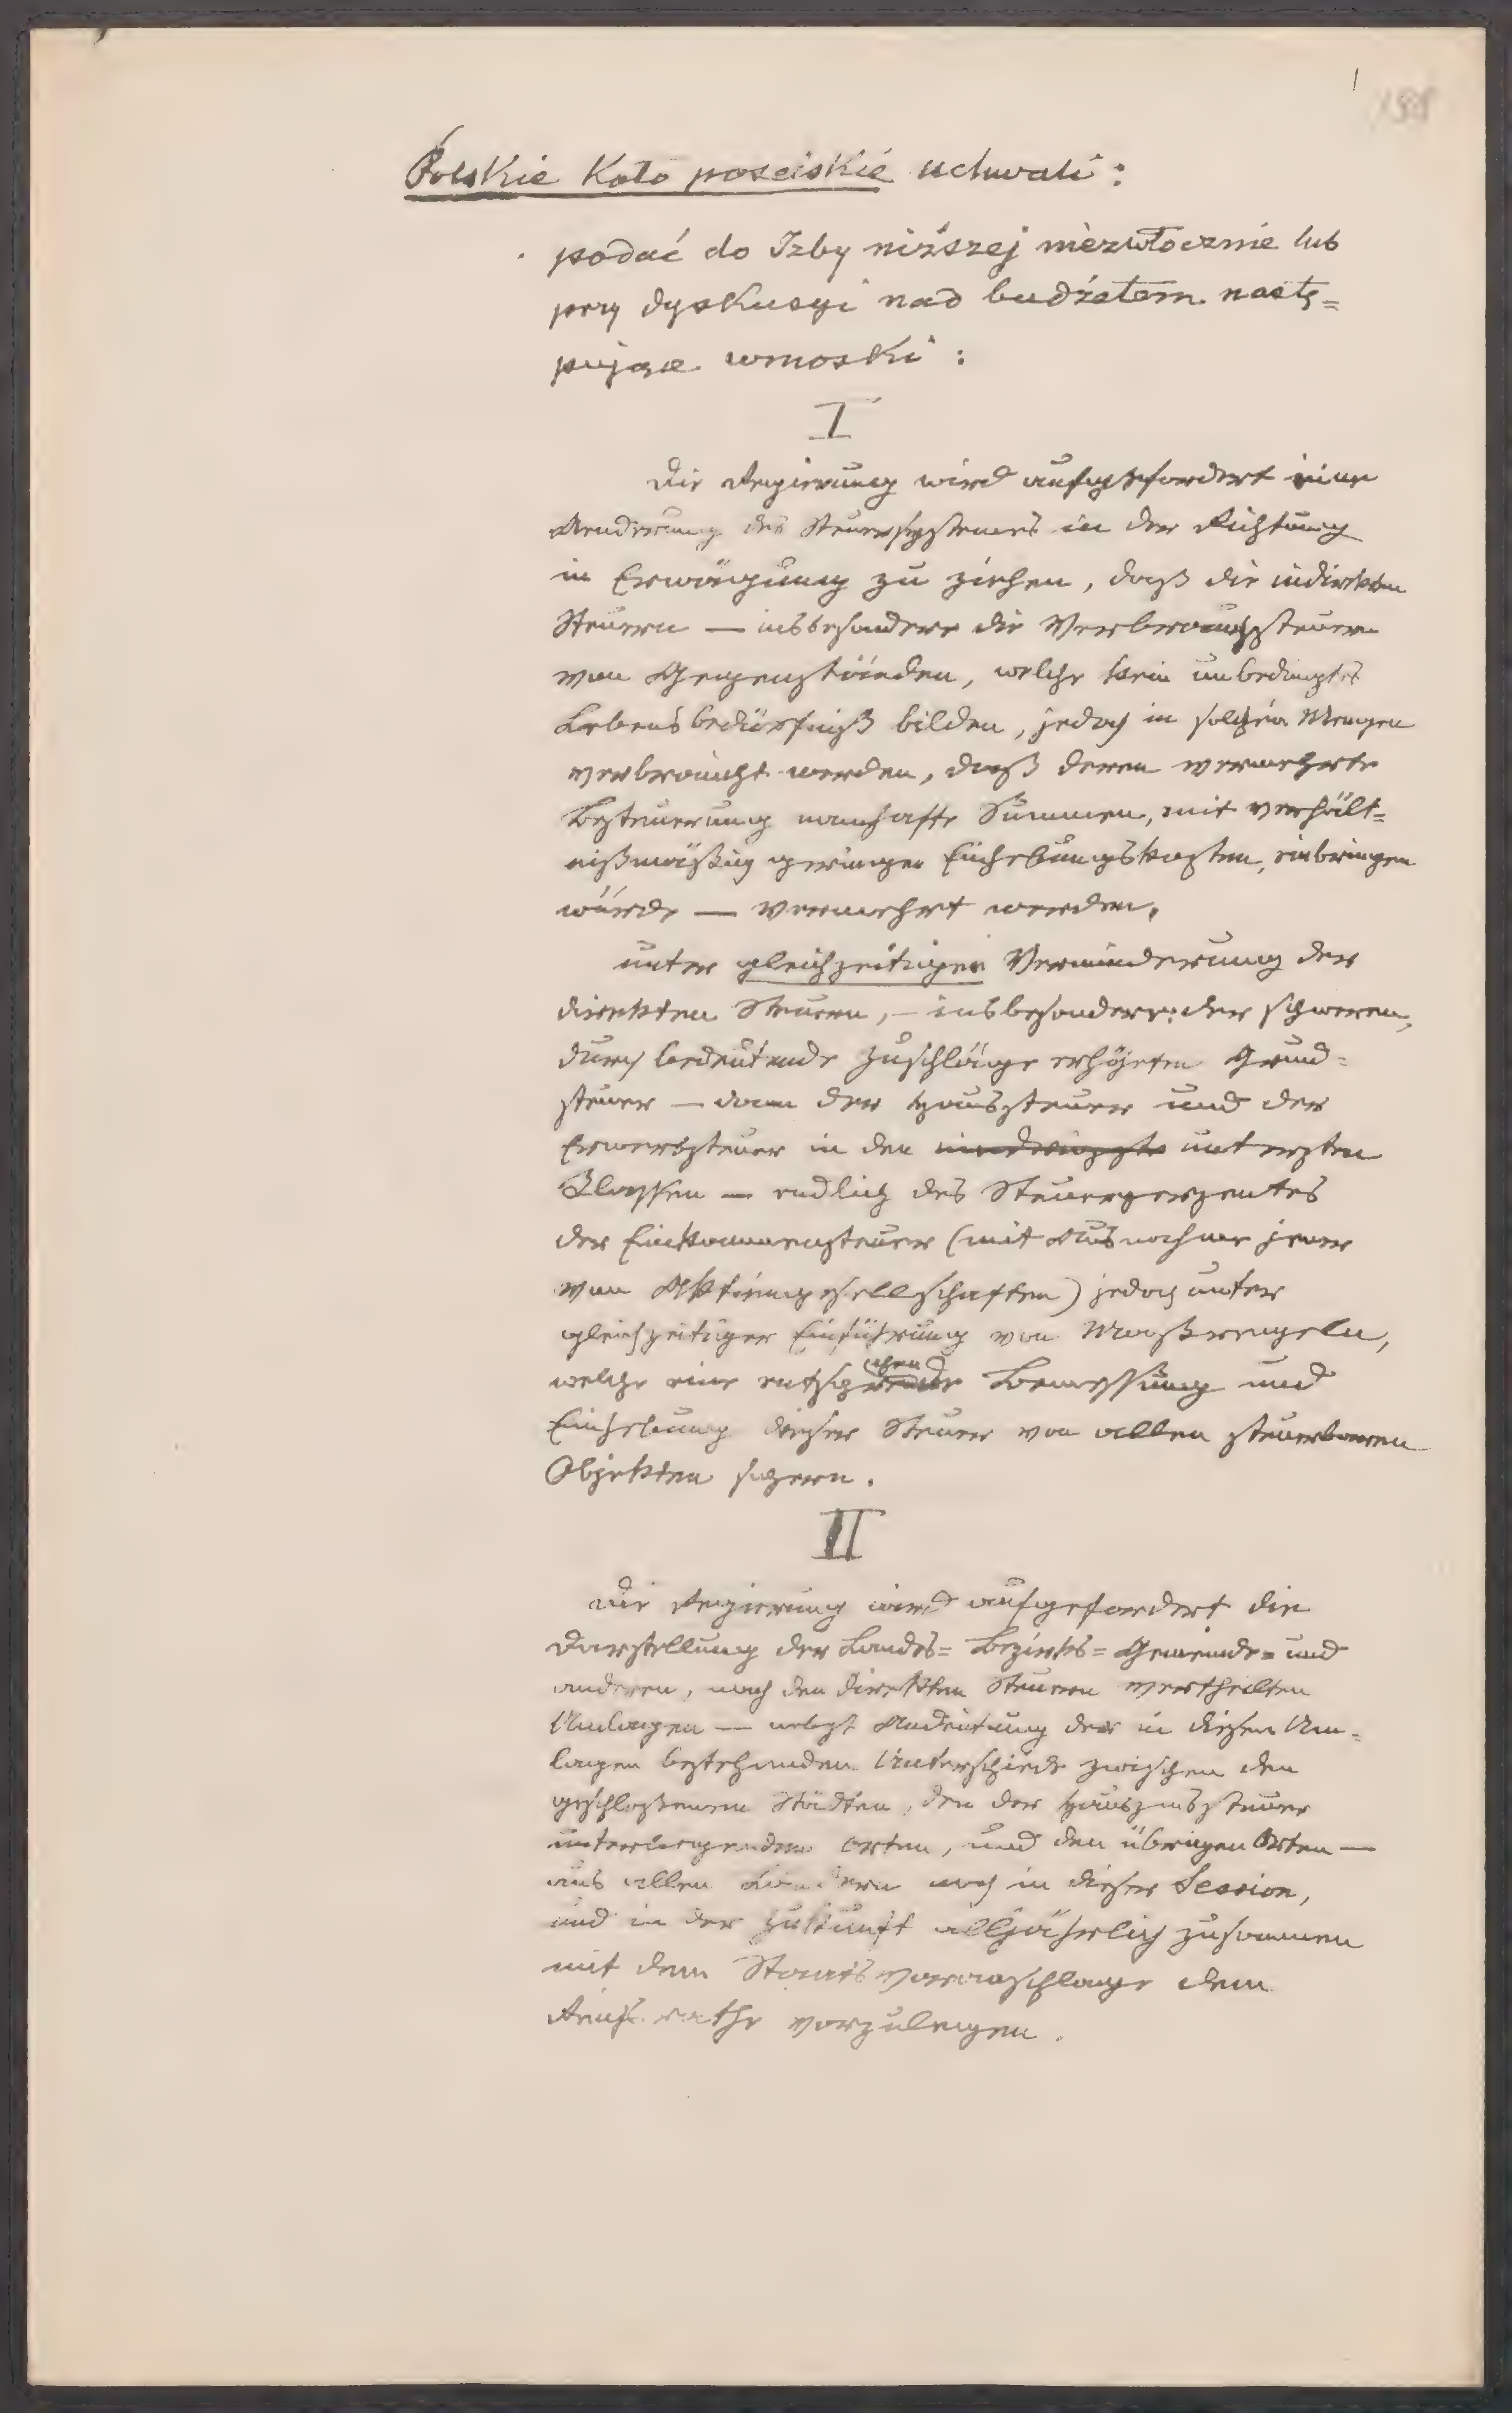 Polskie Koło poselskie uchwali:
podać do Izby niższej niezwłocznie lub
przy dyskusyi nad budżetem nastę=
pujące wnioski:
I
Die Regierung wird aufgefordert eine
Aenderung des Steuersystemes in der Richtung
in Erwägung zu ziehen, daß die indirekten
Steuern — insbesondere die Verbrauchssteuern
von Gegenständen, welche kein unbedingtes
Lebensbedürfniß bilden, jedoch in solchen Mengen
verbraucht werden, daß deren vermehrte
Besteuerung namhafte Summen, mit verhält=
nißmäßig geringen Einhebungskosten, einbringen
würde — vermehrt werden,
unter gleichzeitiger Verminderung der
direkten Steuern, — insbesondere: der schweren,
durch bedeutende Zuschläge erhöhten Grund=
steuer — dann der Haussteuer und der
Erwerbsteuer in den untersten
Klassen — endlich des Steuerperzentes
der Einkommensteuer (mit Ausnahme jener
von Aktiengesellschaften) jedoch unter
gleichzeitiger Einführung von Maßregeln,
welche eine entsprechende Bemessung und
Einhebung dieser Steuer von allen steuerbaren
Objekten sichern.
II
Die Regierung wird aufgefordert die
Darstellung der Landes= Bezirks= Gemeinde= und
anderen, nach den direkten Steuern vertheilten
Umlagen — nebst Andeutung der in diesen Um=
lagen bestehenden Unterschiede zwischen den
geschloßenen Städten, den der Hauszinssteuer
unterliegenden Orten, und den übrigen Orten —
aus allen Ländern noch in dieser Session,
und in der Zukunft alljährlich zusammen
mit dem Staatsvoranschlage dem
Reichsrathe vorzulegen.